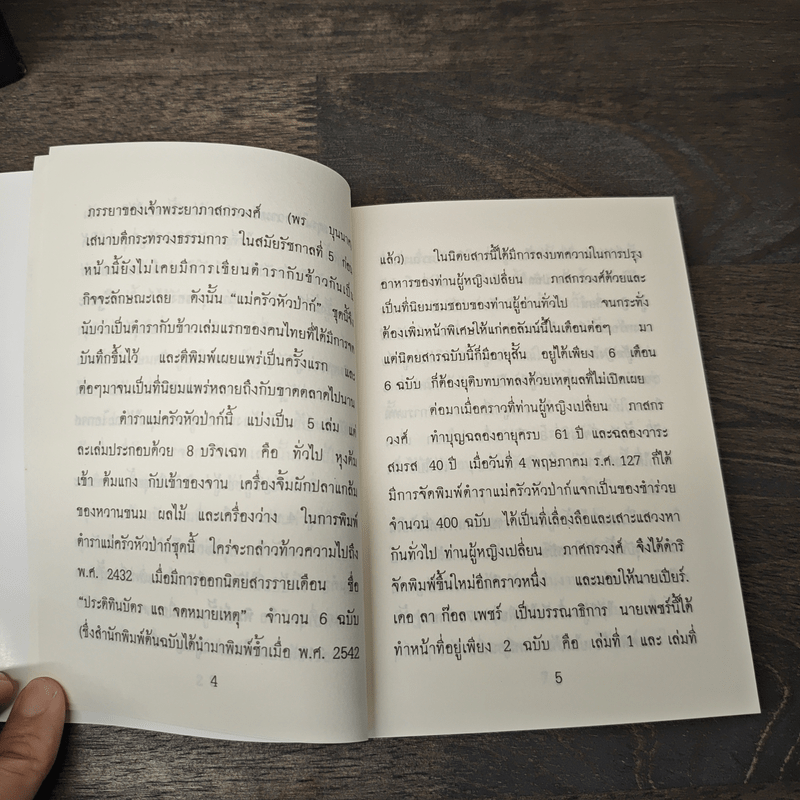 ภรรยาของเจ้าพระยาภาสกรวงศ์ (พร บุนนาค)
เสนาบดีกระทรวงธรรมการ ในสมัยรัชกาลที่ 5 ก่อน
หน้านี้ยังไม่เคยมีการเขียนตำรากับข้าวกันเป็น
กิจจะลักษณะเลย ดังนั้น "แม่ครัวหัวป่าก์" ชุดนี้จึง
นับว่าเป็นตำรากับข้าวเล่มแรกของคนไทยที่ได้มีการจด
บันทึกขึ้นไว้ และตีพิมพ์เผยแพร่เป็นครั้งแรก และ
ต่อๆมาจนเป็นที่นิยมแพร่หลายถึงกับขาดตลาดไปนาน
ตำราแม่ครัวหัวป่าก์นี้ แบ่งเป็น 5 เล่ม แต่
ละเล่มประกอบด้วย 8 บริจเฉท คือ ทั่วไป หุงต้ม
เข้า ต้มแกง กับเข้าของจาน เครื่องจิ้มผักปลาแกล้ม
ของหวานขนม ผลไม้ และเครื่องว่าง ในการพิมพ์
ตำราแม่ครัวหัวป่าก์ชุดนี้ ใคร่จะกล่าวท้าวความไปถึง
พ.ศ. 2432 เมื่อมีการออกนิตยสารรายเดือน ชื่อ
"ประติทินบัตร แล จดหมายเหตุ" จำนวน 6 ฉบับ
(ซึ่งสำนักพิมพ์ต้นฉบับได้นำมาพิมพ์ซ้ำเมื่อ พ.ศ. 2542
4
แล้ว) ในนิตยสารนี้ได้มีการลงบทความในการปรุง
อาหารของท่านผู้หญิงเปลี่ยน ภาสกรวงศ์ด้วยและ
เป็นที่นิยมชมชอบของท่านผู้อ่านทั่วไป จนกระทั่ง
ต้องเพิ่มหน้าพิเศษให้แก่คอลัมน์นี้ในเดือนต่อๆ มา
แต่นิตยสารฉบับนี้ก็มีอายุสั้น อยู่ได้เพียง 6 เดือน
6 ฉบับ ก็ต้องยุติบทบาทลงด้วยเหตุผลที่ไม่เปิดเผย
ต่อมาเมื่อคราวที่ท่านผู้หญิงเปลี่ยน ภาสกร
วงศ์ ทำบุญฉลองอายุครบ 61 ปี และฉลองวาระ
สมรส 40 ปี เมื่อวันที่ 4 พฤษภาคม ร.ศ. 127 ก็ได้
มีการจัดพิมพ์ตำราแม่ครัวหัวป่าก์แจกเป็นของชำร่วย
จำนวน 400 ฉบับ ได้เป็นที่เลื่องลือและเสาะแสวงหา
กันทั่วไป ท่านผู้หญิงเปลี่ยน ภาศกรวงศ์ จึงได้ดำริ
จัดพิมพ์ขึ้นใหม่อีกคราวหนึ่ง และมอบให้นายเปียร์.
เดอ ลา ก๊อล เพซร์ เป็นบรรณาธิการ นายเพซร์นี้ได้
ทำหน้าที่อยู่เพียง 2 ฉบับ คือ เล่มที่ 1 และ เล่มที่
5